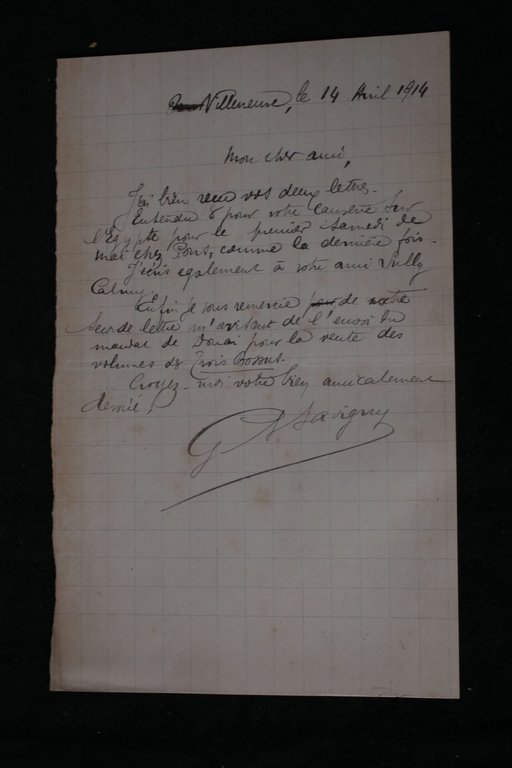 Villeneuve, le 14 Avril 1914
Mon cher ami,
J'ai bien reçu vos deux lettres.
Entendu pour votre causerie sur
l'Egypte pour le premier samedi de
mai chez Pons, comme la dernière fois.
J'écris également à votre ami Sully
Calmy.
Enfin je vous remercie de votre
de lettre m'avisant de l'envoi du
mandat de Douai pour la vente des
volumes des Trois Bossus.
Croyez-moi votre bien amicalement
dévoué,
G Savigny